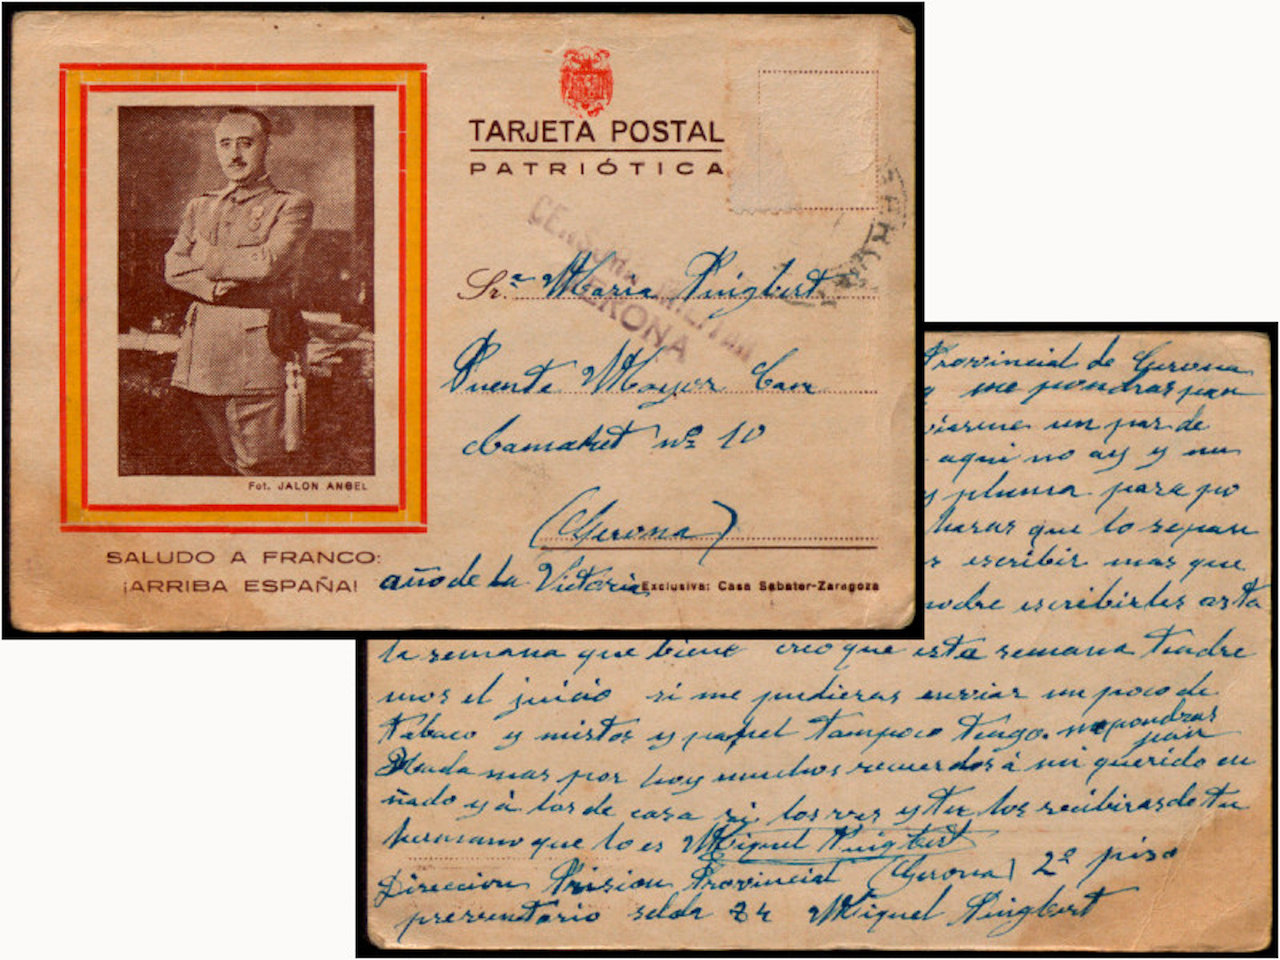 TARJETA POSTAL
PATRIÓTICA
CENSURA MILITAR
GERONA
Sr.ª Maria Puigbert
Puente Mayor Carr
Camaket nº 10
(Gerona)
Fot. JALON ANGEL
SALUDO A FRANCO:
¡ARRIBA ESPAÑA!
año de la Victoria
Exclusiva: Casa Sabater-Zaragoza
Provincial de Gerona
y me pondras pan
un par de
aqui no ay y nu
y pluma para po
haras que lo sepan
escribir mas que
podre escribirles asta
la semana que biene creo que esta semana tendre
mos el juicio si me pudieras enviar un poco de
tabaco y mistos y papel tampoco tengo me pondras
pan
Nada mas por hoy muchos recuerdos á mi querido cu
ñado y á los de casa si los ves y tu los recibiras de tu
hermano que lo es Miguel Puigbert
Direccion Prision Provincial (Gerona) 2º piso
preventorio selda Miguel Puigbert